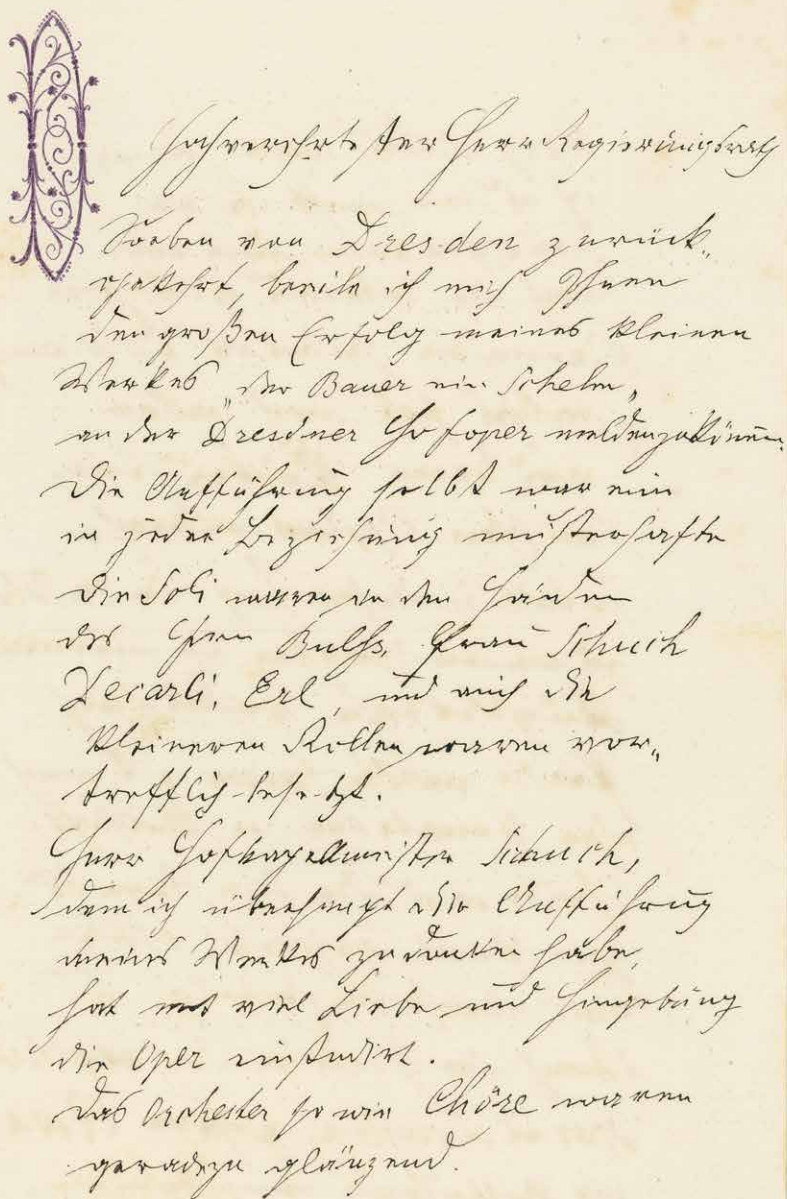 Hochverehrtester Herr Regierungsrath
Soeben von Dresden zurück„
gekehrt, beeile ich mich Ihnen
den großen Erfolg meines kleinen
Werkes „der Bauer ein Schelm„
an der Dresdner Hofoper melden zu können.
Die Aufführung selbst war eine
in jeder Beziehung musterhafte
Die Soli waren in den Händen
des Herrn Bulß, Frau Schuch
Decarli, Erl, und auch die
kleineren Rollen waren vor„
trefflich besetzt.
Herr Hofkapellmeister Schuch,
dem ich überhaupt die Aufführung
meines Werkes zu danken habe,
hat mit viel Liebe und Hingebung
die Oper einstudirt.
Das Orchester so wie Chöre waren
geradezu glänzend.